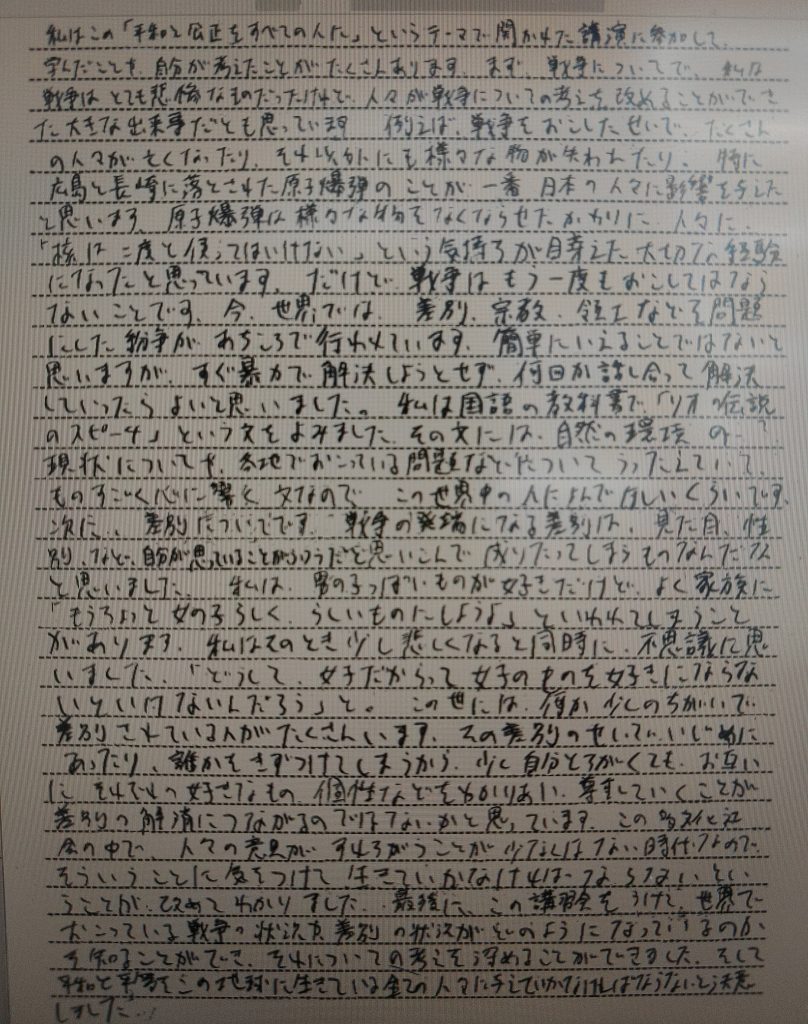 私はこの「平和と公正をすべての人に」というテーマで開かれた講演に参加して、
学んだことや、自分が考えたことがたくさんあります。まず、戦争についてで、私は
戦争はとても悲惨なものだったけれど、人々が戦争についての考えを改めることができ
た大きな出来事だとも思っています 例えば、戦争をおこしたせいで、たくさん
の人々が亡くなったり、それ以外にも様々な物が失われたり、特に
広島と長崎に落とされた原子爆弾のことが一番日本の人々に影響を与えた
と思います。原子爆弾は様々な物をなくならせたかわりに、人々に、
「核は二度と使ってはいけない」という気持ちが芽芽えた大切な経験
になったと思っています。だけど、戦争はもう一度もおこしてはなら
ないことです。今、世界では、差別、宗教、領土などを問題
にした紛争があちころで行われています。簡単にいえることではないと
思いますが、すぐ暴力で解決しようとせず、何回か話し合って解決
していったらよいと思いました。私は国語の教科書で「リオの伝説
のスピーチ」という文をよみました。その文には、自然の環境の
現状についてや、各地でおこっている問題などについてうったえていて、
ものすごく心に響く文なので、この世界中の人によんでほしいくらいです。
次に、差別についてです。戦争の発端になる差別は、見た目、性
別、など、自分が思っていることがふつうだと思いこんで成りたってしまうものなんだな
と思いました。私は、男の子っぽいものが好きだけど、よく家族に
「もうちょっと女の子らしく、らしいものにしようよ」といわれてしまうこと
があります。私はそのとき少し悲しくなると同時に、不思議に思
いました。「どうして、女子だからって女子のものを好きにならな
いといけないんだろう」と。この世には、何か少しのちがいで
差別されている人がたくさんいます。その差別のせいで、いじめに
あったり、誰かをきずつけてしまうから、少し自分とちがくても、お互い
に、それぞれの好きなもの、個性などをわかりあい、尊重していくことが
差別の解消につながるのではないかと思っています。この多文化社
会の中で、人々の意見がすれちがうことが少なくはない時代なので、
そういうことに気をつけて生きていかなければならないとい
うことが、改めてわかりました。最後に、この講習会をうけて、世界で
おこっている戦争の状況や差別の状況がどのようになっているのか
を知ることができ、それについての考えを深めることができました。そして
平和と平等をこの地球に生きている全ての人々に与えていかなければならないと決意
しました